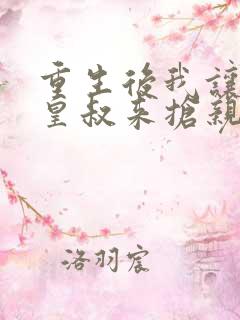 重生後我讓
皇叔来搶親
洛羽宸